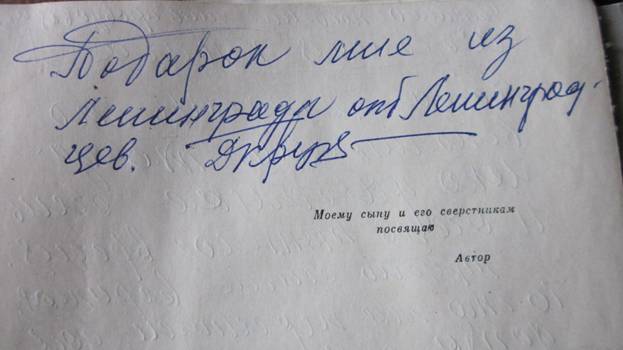 Подарок мне из
Ленинграда от Ленинград-
цев.
Моему сыну и его сверстникам
посвящаю
Автор